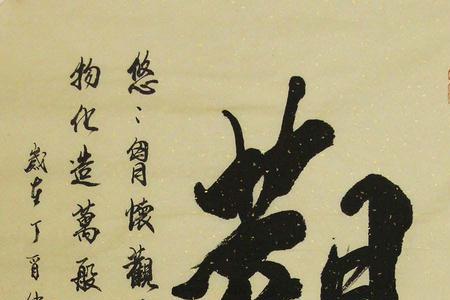 悠〻胷懷觀
物化造萬般
歲在丁酉